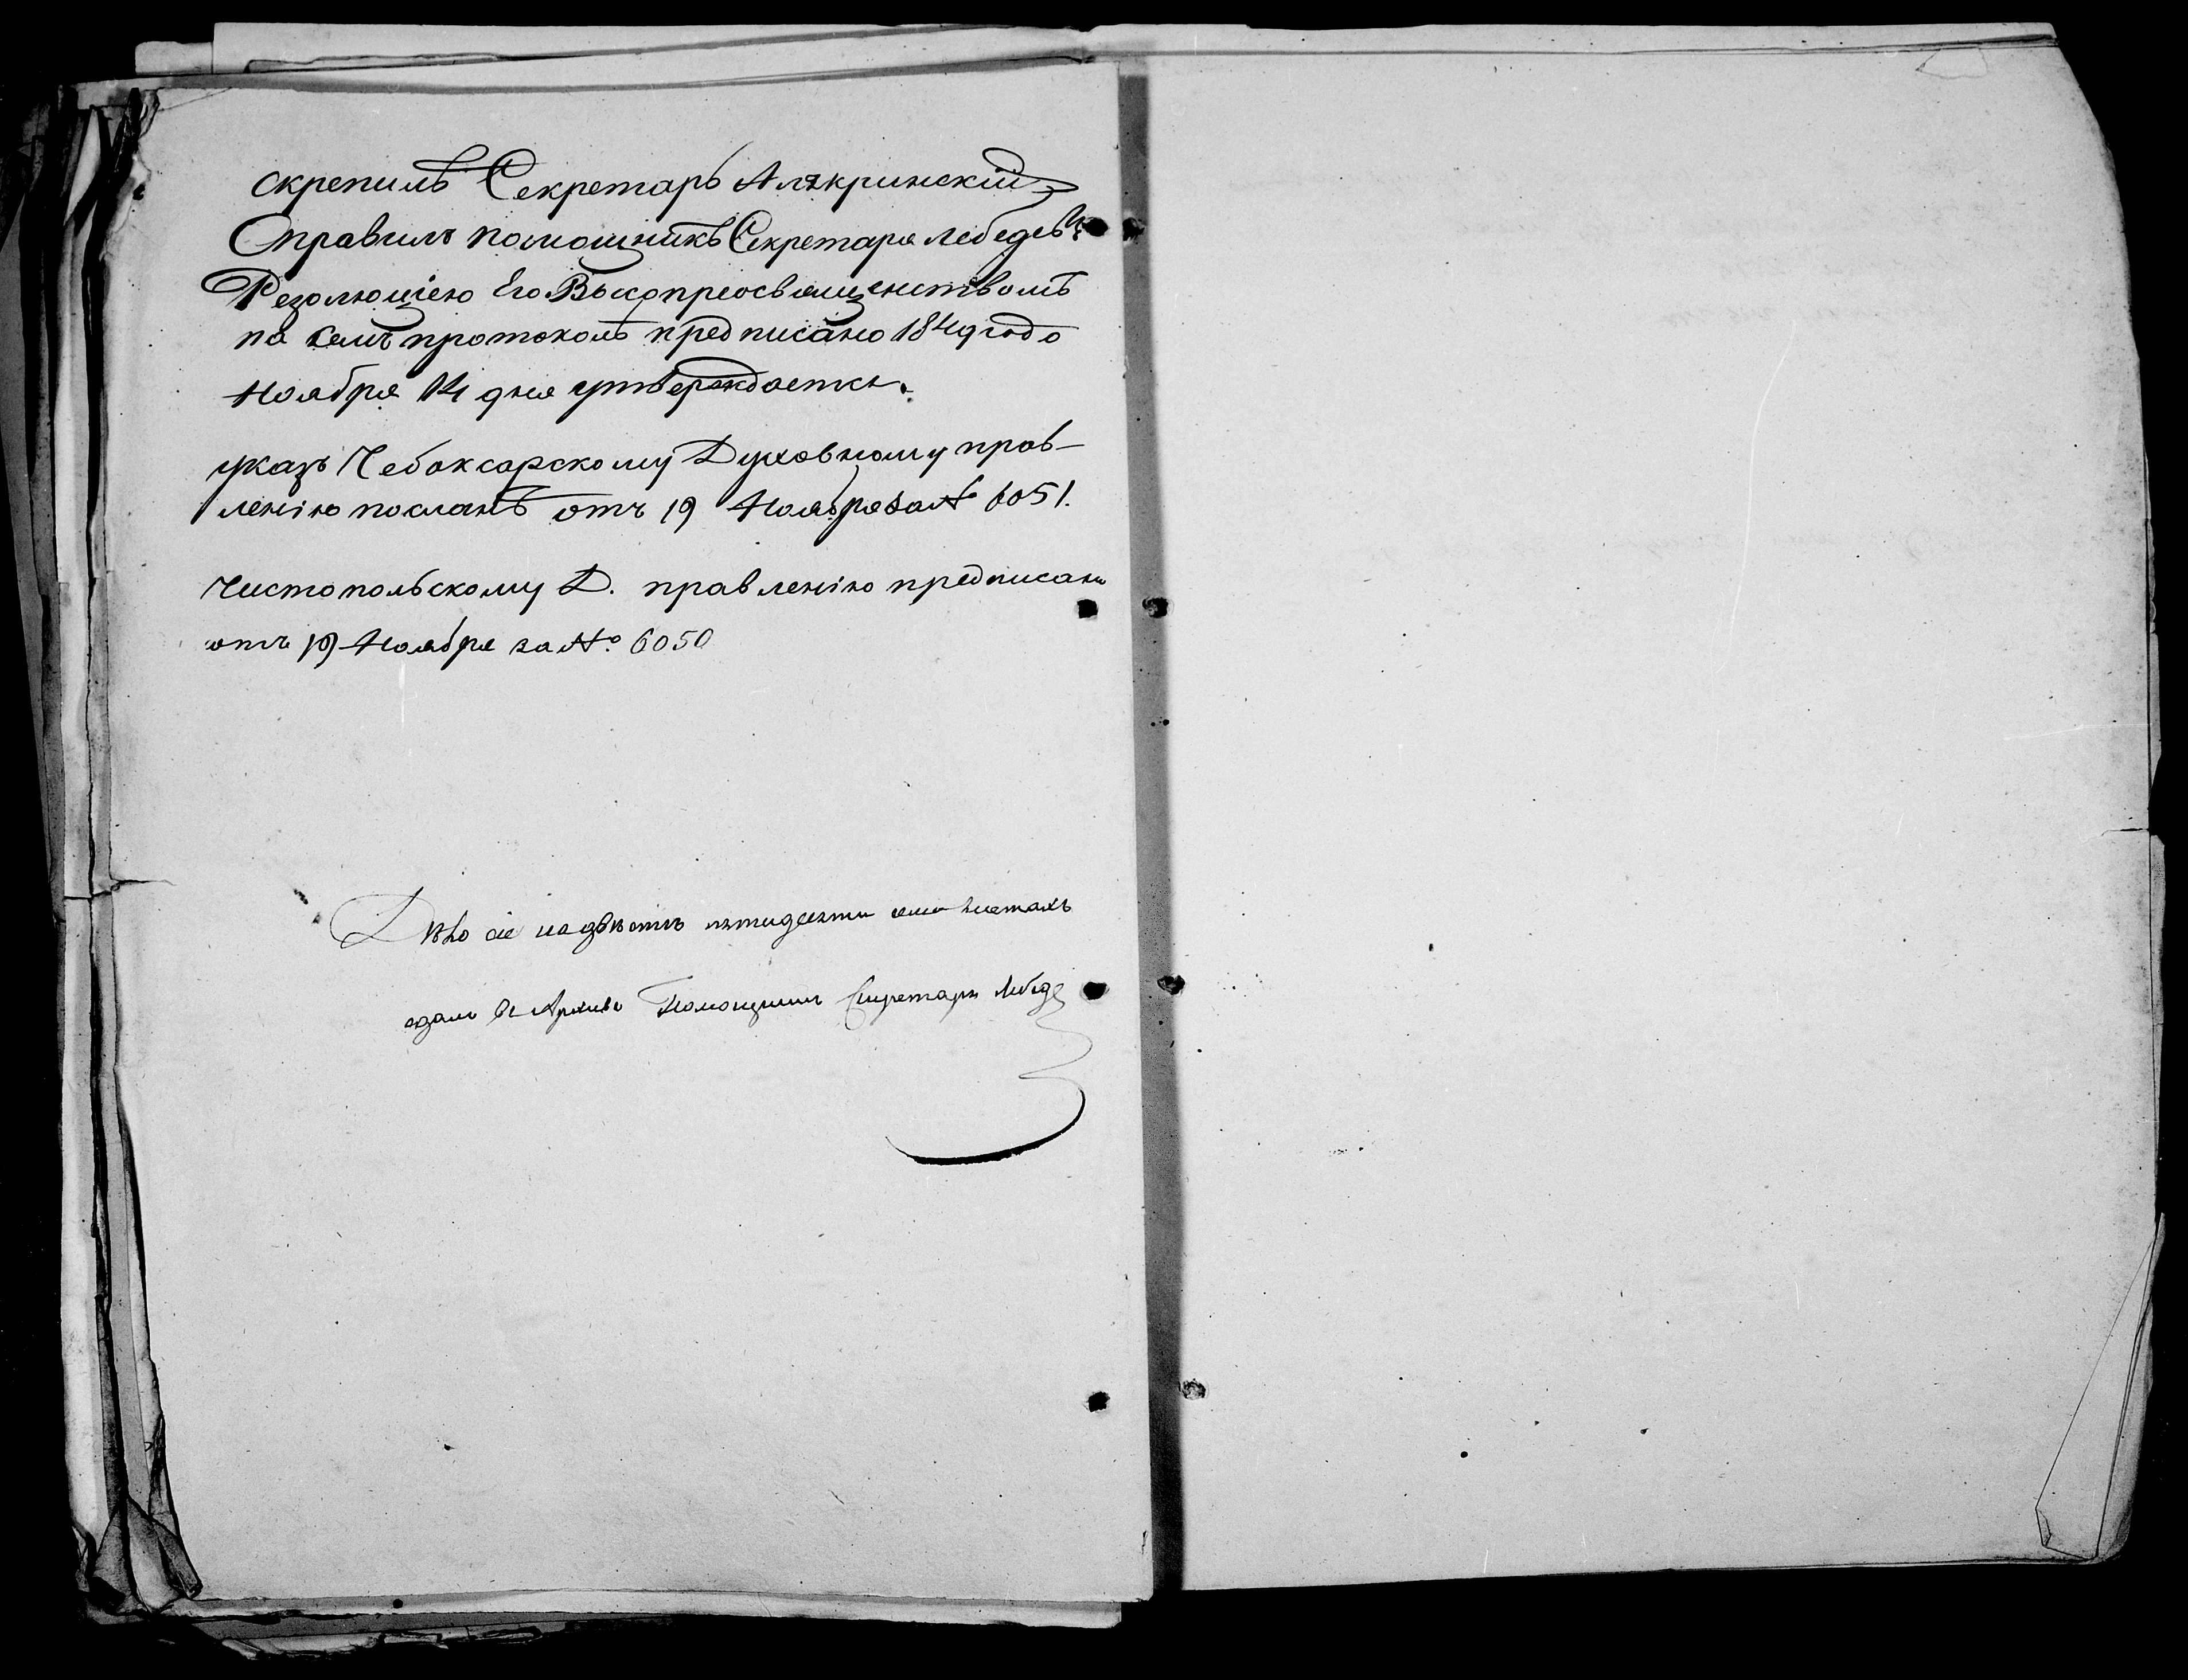 скрепилъ Секретарь Алякринскій
Справилъ помощникъ Секретаря Лебедевъ
Резолюціею Его Высокопреосвященствомъ
на семъ протоколѣ предписано 1849 года
Ноября 14 дня утверждается.
указъ Чебоксарскому Духовному прав-
ленію посланъ отъ 19 Ноября за № 6051.
Чистопольскому Д. правленію предписано
отъ 19 Ноября за №. 6050
Дѣло сіе на двѣстѣ пятидесяти семи листахъ
сдалъ въ Архивъ Помощникъ Секретаря Лебеде